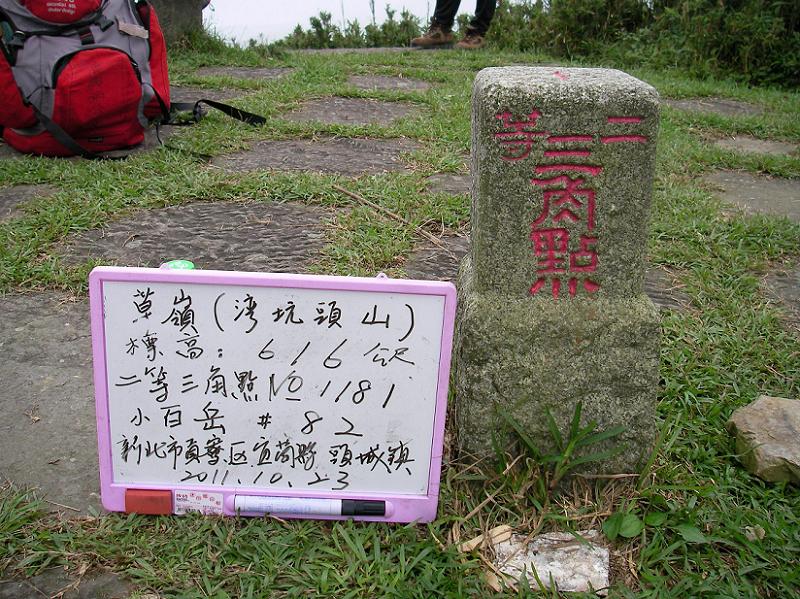 草嶺(湾坑頭山)
標高:616公尺
二等三角點№1181
小百岳#82
新北市貢寮区宜蘭縣頭城鎮
2011.10.23
二等
三角點